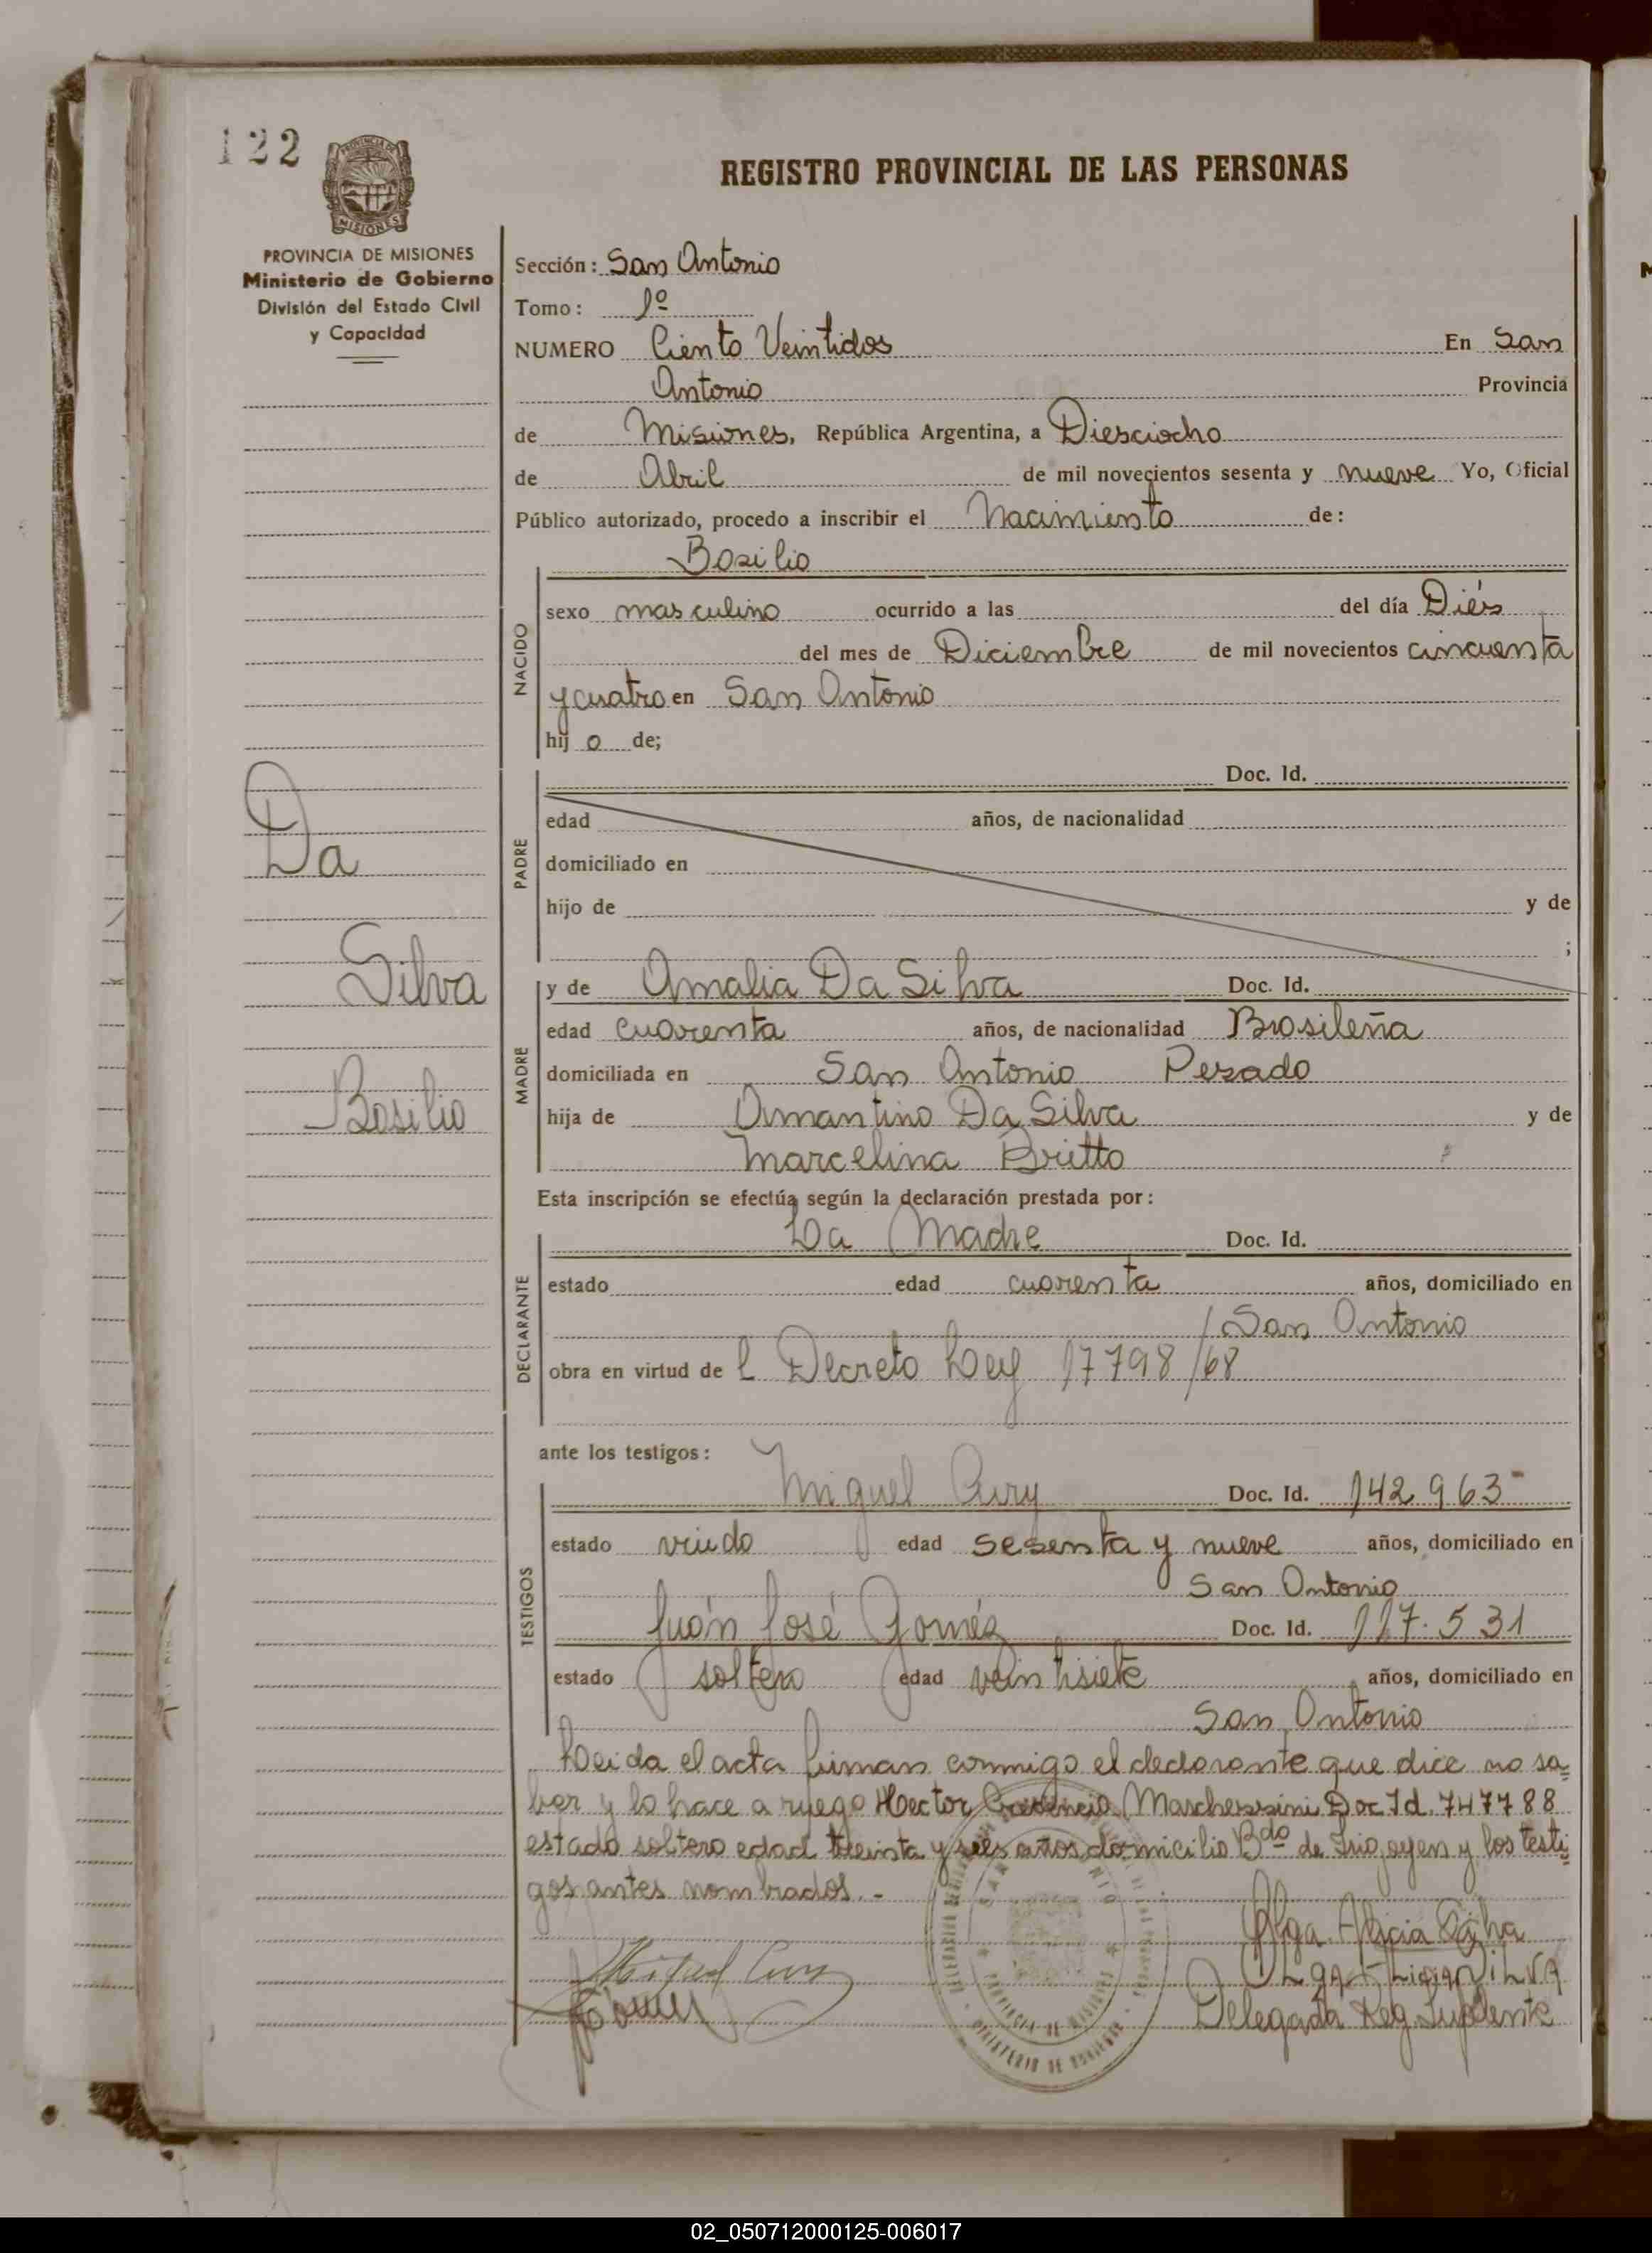 122
REGISTRO PROVINCIAL DE LAS PERSONAS
PROVINCIA DE MISIONES
Ministerio de Gobierno
División del Estado Civil
y Capacidad
Sección: San Antonio
Tomo: 1º
NUMERO Ciento Veintidos En San
Antonio Provincia
de Misiones, República Argentina, a Diesciocho
de Abril de mil novecientos sesenta y nueve Yo, Oficial
Público autorizado, procedo a inscribir el Nacimiento de:
Basilio
NACIDO
sexo masculino ocurrido a las del día Diés
del mes de Diciembre de mil novecientos cincuenta
y cuatro en San Antonio
hij o de;
PADRE
Doc. Id.
edad años, de nacionalidad
domiciliado en
hijo de y de
;
Da
Silva
Basilio
MADRE
y de Amalia Da Silva Doc. Id.
edad cuarenta años, de nacionalidad Brasileña
domiciliada en San Antonio Pesado
hija de Amantino Da Silva y de
Marcelina Britto
Esta inscripción se efectúa según la declaración prestada por:
DECLARANTE
La Madre Doc. Id.
estado edad cuarenta años, domiciliado en
San Antonio
obra en virtud de l Decreto Ley 17798/68
ante los testigos:
TESTIGOS
Miguel Doc. Id. 142963
estado viudo edad sesenta y nueve años, domiciliado en
San Antonio
Juán José Goméz Doc. Id. 117.531
estado soltero edad veintisiete años, domiciliado en
San Antonio
Leida el acta firman conmigo el declarante que dice no sa=
ber y lo hace a ruego Hector Marchessini Doc Id. 747788
estado soltero edad treinta y seis años domicilio Bdo de Irigoyen y los testi=
gos antes nombrados.-
Olga Alicia
Olga Alicia Silva
Delegada Reg. Suplente
Miguel
Gómez
02_050712000125-006017